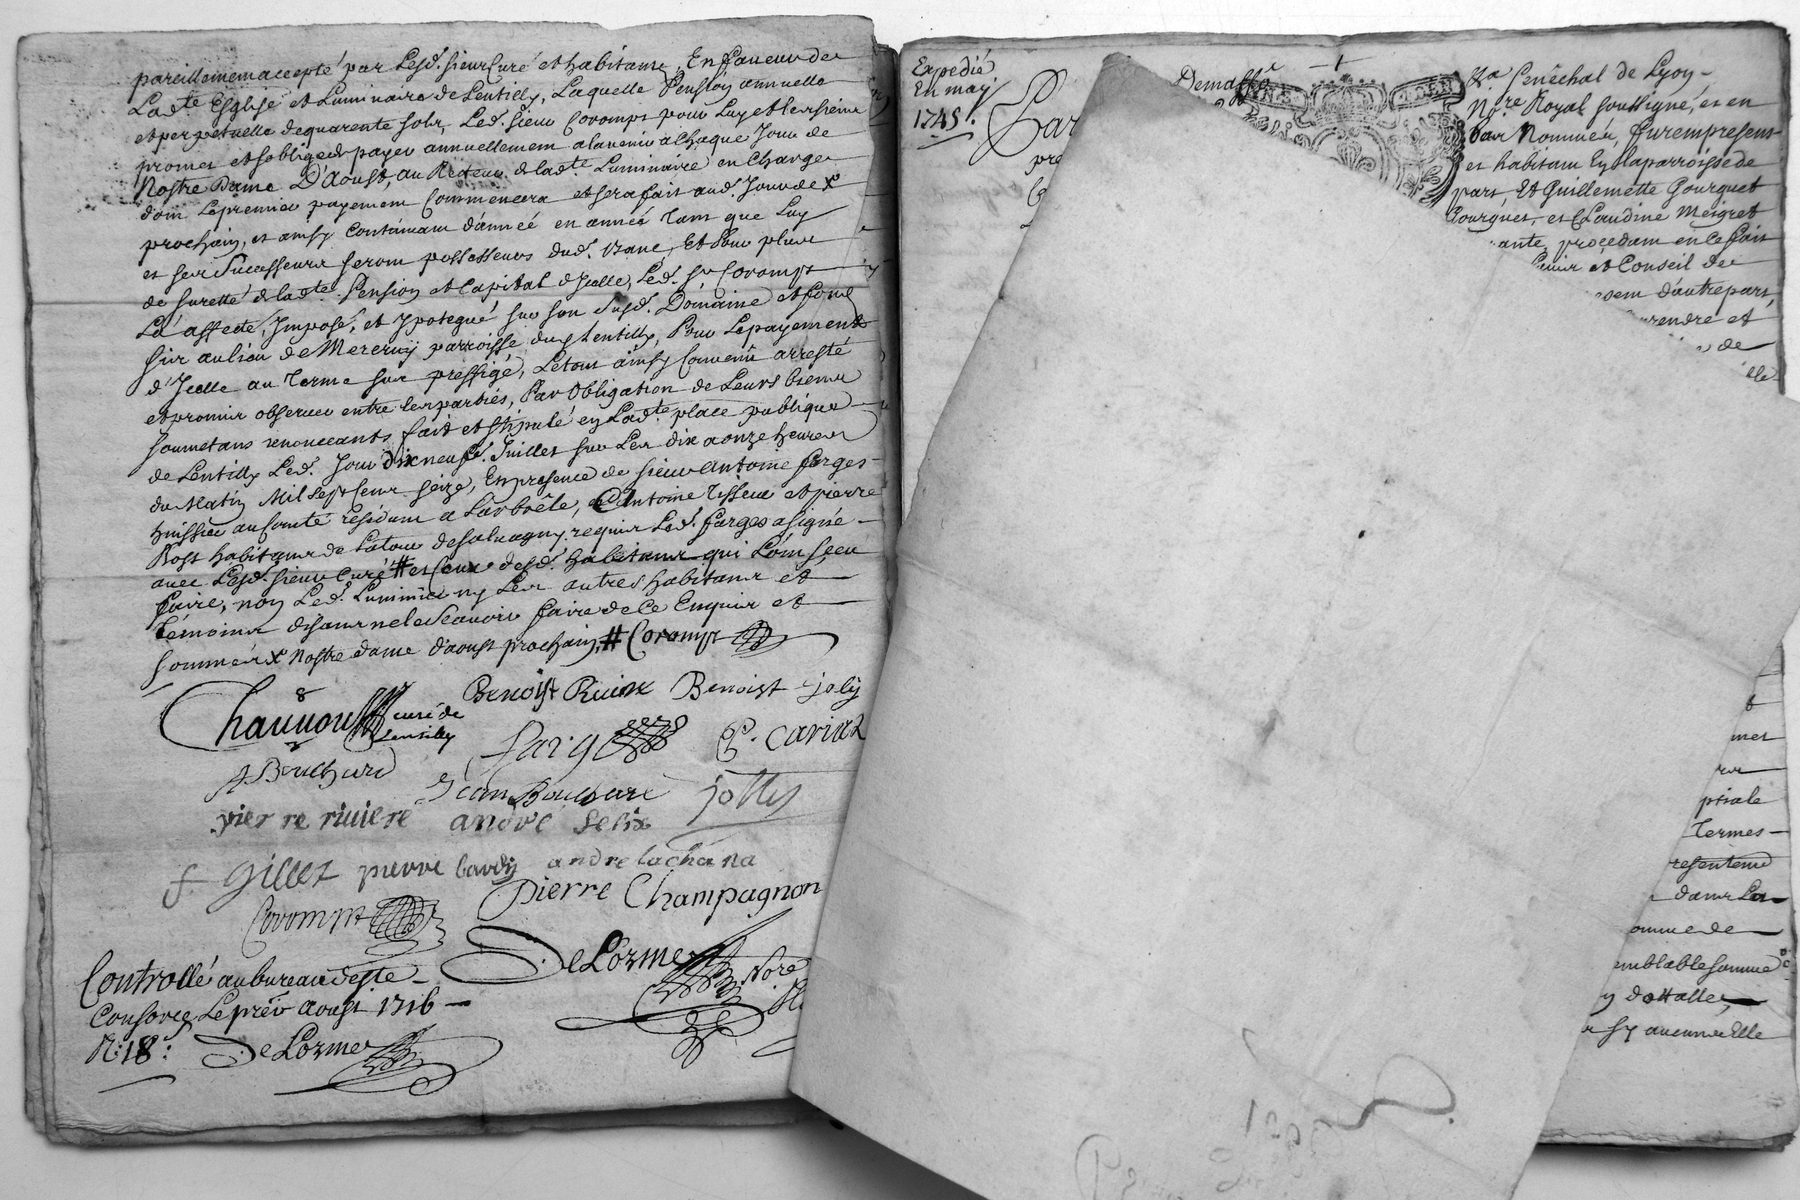 pareillement accepté par Lesd. sieur Curé et habitans, En faveur de
Lad.te Esglise et Luminaire de Lentilly, Laquelle Pension annuelle
et perpetuelle de quarente sols, Led. sieur Coromps pour Luy et les siens
promet et soblige de payer annuellement alavenir a Chaque Jour de
Nostre Dame D'Aoust, au Recteur de lad.te Luminaire en Charge
dont Lepremier payement Commencera et sera fait aud. Jour de X
prochain, et ainsy Continuant d'année en année Tant que Luy
et ses Successeurs seront possesseurs dud. Banc, Et Pour plus
de suretté de lad.te Pension et Capital d'Jcelle, Led. sr Coromps
La affecté, Jmposé, et Jpotequé sur son susd. Domaine et fond
sis au lieu de Mereruy parroisse dud Lentilly, Pour Lepayement
d'Jcelle au Terme sus preffigé, Letout ainsy Convenu arresté
et promis observer entre les parties, Par Obligation de Leurs biens
soumetans renonceants, fait et stipulé en Lad.te place publique
de Lentilly Led. Jour dix neuf.e Juillet sur Les dix a onze heures
du Matin Mil Sept Cent seize, En presence de sieur Antoine farges
huissier au Comté residant a Larbrêle, et Antoine Tisseur et pierre
Post habitans de Latour desalvagny requis Led. farges a signé
avec Lesd. sieur Curé # et Ceux desd. habitans qui L'ont sceu
faire, non Led. Luminier ny Les autres habitans et
témoins disans ne le Scavoir faire de Ce Enquis et
sommés X Nostre dame d'aoust prochain, # Coromps
Chavvou curé de
Lentilly
Benoist Riviere Benoist joly
farge
C. cariaz
A Bouchard
Jean Bouchard
jolly
pierre riviere andré felix
f. Gillet pierre bardy andre lachana
Pierre Champagnon
Coromps
DeLozme Nore
Controllé au bureau de ste
Consorce Le pré.r Aoust 1716
N: 18: DeLozme
Expedié
En may
1745.
Par
pre
Demasse
sta senéchal de Lyon
N.re Royal soussigné, et en
bas Nommés, furent presens
et habitant En la parroisse de
part, Et Guillemette Gourguet
Gourguet, et Claudine Meigret
ante, procedant en Ce fait
et Conseil de
d'autre part,
prendre et
de
lle
met
ptiale
Termes
resentend
dans La
omme de
emblable somme
y d'Halles
sy aucun Elle